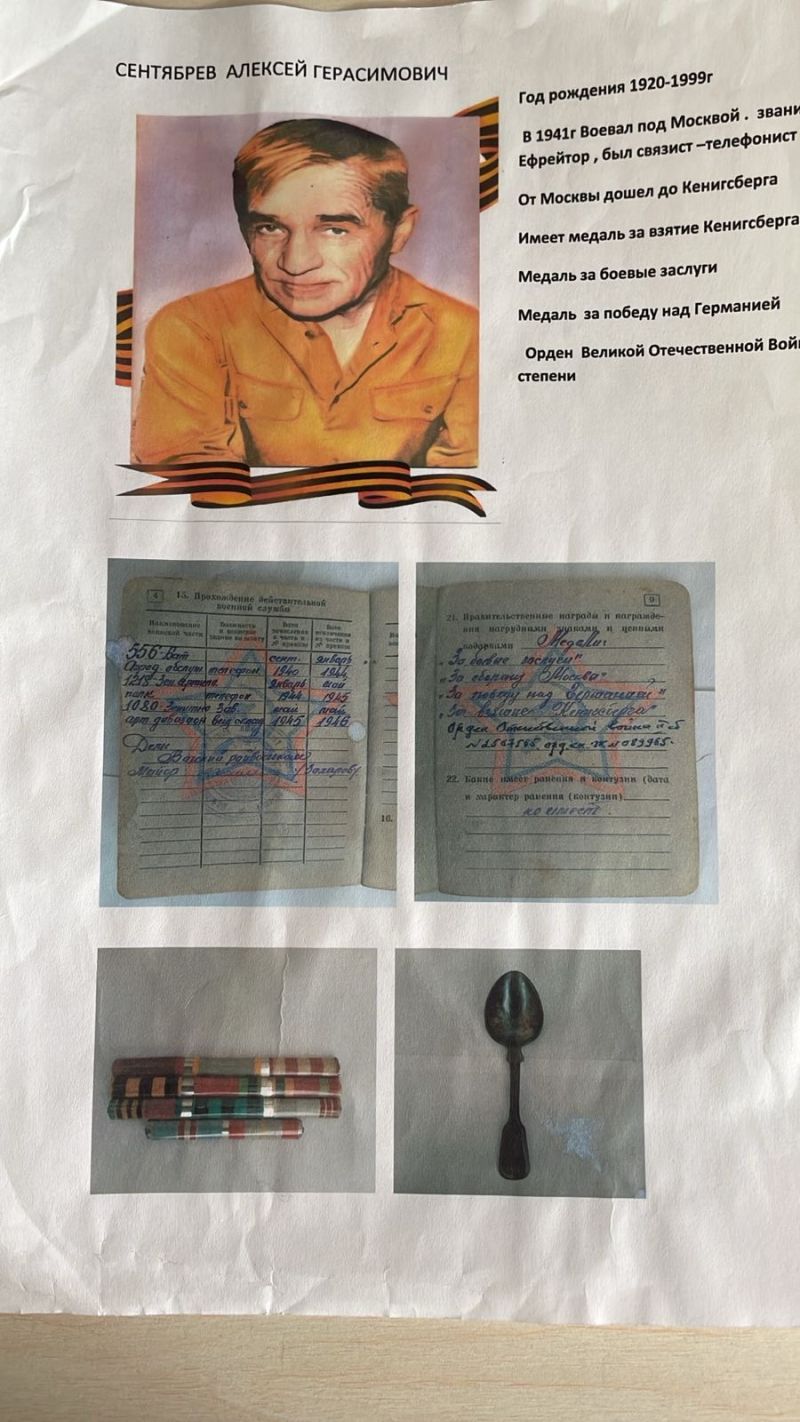 СЕНТЯБРЕВ АЛЕКСЕЙ ГЕРАСИМОВИЧ
Год рождения 1920-1999г
В 1941г Воевал под Москвой . звани
Ефрейтор , был связист –телефонист
От Москвы дошел до Кенигсберга
Имеет медаль за взятие Кенигсберга
Медаль за боевые заслуги
Медаль за победу над Германией
Орден Великой Отечественной Вой
степени
4
15. Прохождение действительной
военной службы
Наименование
воинской части
556
сент. январь
телефон 1940 1944
1219 январь май
полк телефон 1944 1945
1080 Зенитно Зав. май май
арт. дивизион 1945 1946
Майор Захаров
16.
9
21. Правительственные награды и награжде-
ния нагрудными знаками и ценными
подарками Медали:
"За боевые заслуги"
"За оборону Москвы"
"За победу над Германией"
"За взятие Кенигсберга"
Орден Отечественной войны
22. Какие имеет ранения и контузии (дата
и характер ранения (контузии)
не имеет.